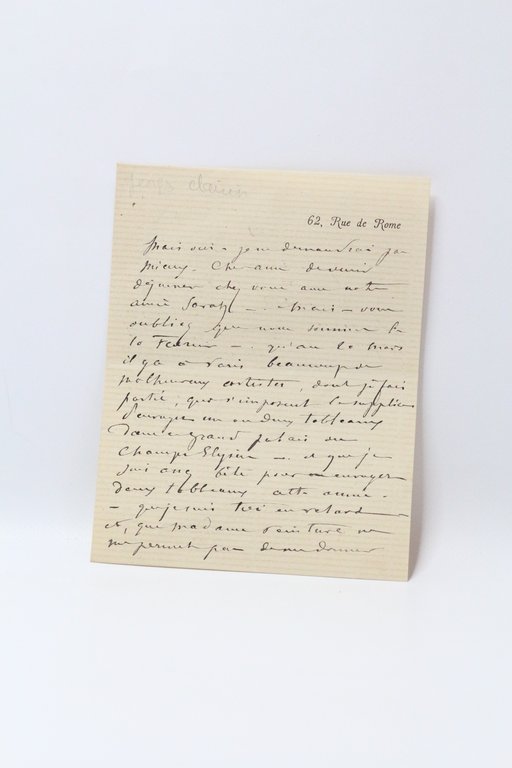 62, Rue de Rome
Mais oui – je ne demanderai pas
mieux. Cher ami de venir
déjeuner chez vous avec notre
amie Sarah – . Mais – vous
oubliez que nous sommes le
10 Fevrier – . qu'au 20 Mars
il y a à Paris beaucoup de
malheureux artistes, dont je fais
partie, qui s'imposent le supplice
d'envoyer un ou deux tableaux
dans ce grand palais des
Champs Elysées – . et que je
suis assez bête pour en envoyer
deux tableaux cette année.
– que je suis très en retard
et, que madame Peinture ne
me permet pas de me donner